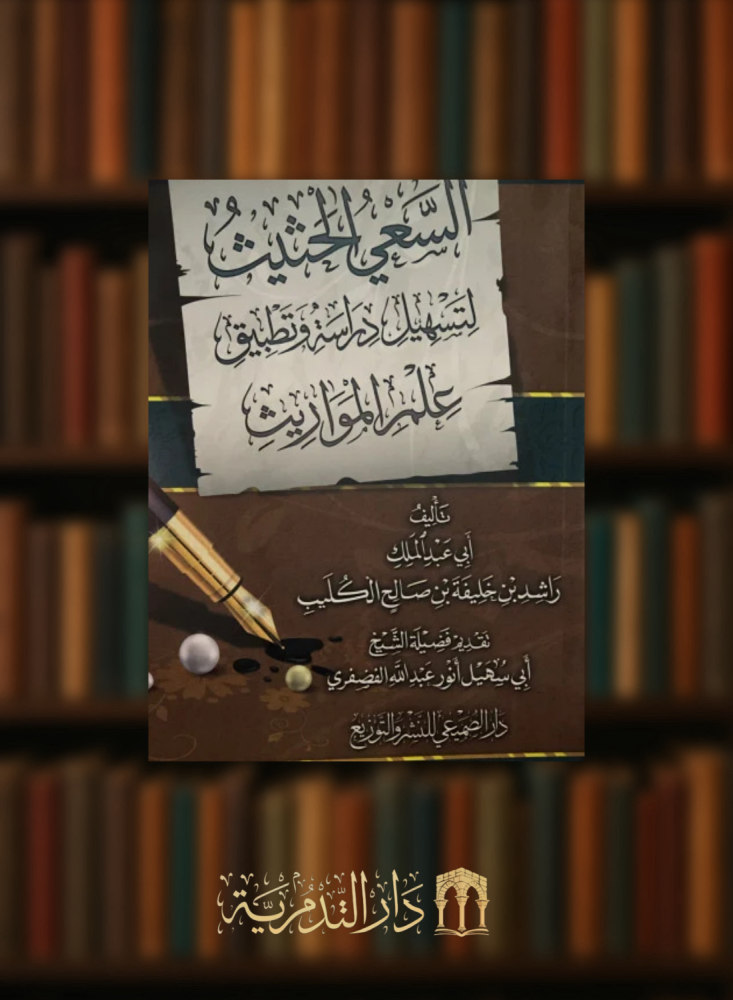 السَّعْيُ الحَثِيثُ
لِتَسْهِيلِ دِرَاسَةِ وَتَطْبِيقِ
عِلْمِ المَوَارِيثِ
تَأْلِيفُ
أَبِي عَبْدِ المَلِكِ
رَاشِدِ بْنِ خَلِيفَةَ بْنِ صَالِحٍ الكُلَيبِ
تَقْدِيمُ فَضِيلَةِ الشَّيْخِ
أَبِي سُهَيْل أَنْوَر عَبْدِ اللَّهِ الفضفري
دَارُ الصُّمَيْعِي لِلنَّشْرِ وَالتَّوْزِيعِ
دَارُ التَّدْمُرِيَّةِ